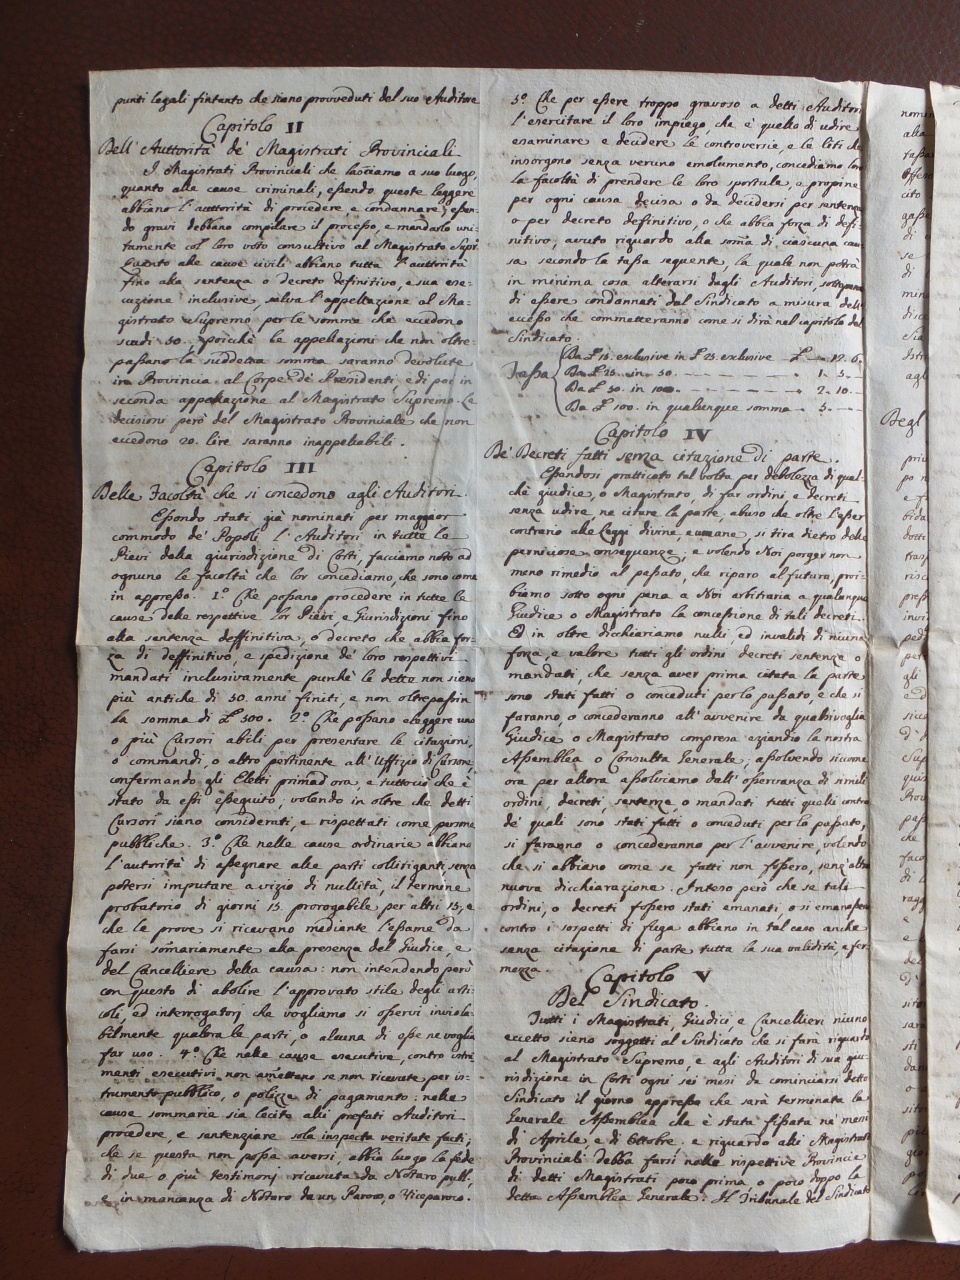 punti legali fintanto che siano provveduti del suo Auditore
Capitolo II
Dell' Auttorità de' Magistrati Provinciali
I Magistrati Provinciali che lasciamo a suo luogo,
quanto alle cause criminali, essendo queste leggere
abbiano l'auttorità di procedere, e condannare, essen-
do gravi debbano compilare il processo, e mandarlo uni-
tamente col loro voto consultivo al Magistrato Supr
Quanto alle cause civili abbiano tutta l'auttorità
fino alla sentenza o decreto definitivo, e sua ese-
cuzione inclusive, salva l'appellazione al Ma-
gistrato Supremo per le somme che eccedono
scudi 50. poichè le appellazioni che non oltre-
passano la suddetta somma saranno devolute
in Provincia al Corpo de' Presidenti, e di poi in
seconda appellazione al Magistrato Supremo. Le
decisioni però del Magistrato Provinciale che non
eccedono 20. lire saranno inappellabili.
Capitolo III
Delle Facoltà che si concedono agli Auditori.
Essendo stati già nominati per maggior
commodo de' Popoli l'Auditori in tutte le
Pievi della giurisdizione di Corti, facciamo noto ad
ognuno le facoltà che lor concediamo, che sono come
in appresso. 1º Che possano procedere in tutte le
cause delle respettive lor Pievi, e Giurisdizioni fino
alla sentenza deffinitiva, o decreto che abbia for-
za di deffinitivo, e spedizione de' loro respettivi
mandati inclusivamente purchè le dette non sieno
più antiche di 50. anni finiti, e non oltrepassin
la somma di £ 500. 2º Che possano eleggere uno
o più Cursori abili per presentare le citazioni,
o commandi, o altro pertinente all'Uffizio di Cursore,
confermando gli Eletti primad'ora, e tuttociò che è
stato da essi esseguito; volendo in oltre che detti
Cursori siano considerati, e rispettati come persone
pubbliche. 3º Che nelle cause ordinarie abbiano
l'autorità di assegnare alle parti collitiganti senza
potersi imputare a vizio di nullità, il termine
probatorio di giorni 15 prorogabile per altri 15, e
che le prove si ricevano mediante l'essame da
farsi somariamente alla presenza del Giudice, e
del Cancelliere della causa: non intendendo però
con questo di abolire l'approvato stile degli arti-
coli, ed interrogatorj che vogliamo si osservi inviola-
bilmente qualora le parti, o alcuna di esse ne voglia
far uso. 4º Che nelle cause esecutive, contro istru
menti esecutivi non amettano se non ricevute per is-
trumento pubblico, o polizze di pagamento: nelle
cause sommarie sia lecito alli prefati Auditori
procedere, e sentenziare sola inspecta veritate facti;
che se questa non possa aversi, abbia luogo la fede
di due o più testimonj ricevuta da Notaro pubb.,
e in mancanza di Notaro da un Paroco, o Viceparoco.
5º Che per essere troppo gravoso a detti Auditori
l'esercitare il loro impiego, che è quello di udire
esaminare e decidere le controversie, e le liti che
insorgono senza veruno emolumento, concediamo loro
la facoltà di prendere le loro sportule, o propine
per ogni causa decisa o da decidersi per sentenza
o per decreto definitivo, o che abbia forza di defi-
nitivo, avuto riguardo alla soma di ciascuna cau
sa secondo la tassa seguente, la quale non potrà
in minima cosa alterarsi dagli Auditori, sotto pena
di essere condannati dal Sindicato a misura dell'
eccesso che commetteranno come si dirà nel capitolo del
Sindicato.
Da £ 15. exclusive in £ 25. exclusive £ — 12. 6.
Tassa Da £ 25. in 50. — 1. 5. —
Da £ 50. in 100. — 2. 10. —
Da £ 100. in qualunque somma — 5. —
Capitolo IV
De' Decreti fatti senza citazione di parte.
Essendosi pratticato tal volta per debolezza di qual-
che giudice, o Magistrato, di far ordini, e decreti
senza udire ne citare la parte, abuso che oltre l'esser
contrario alle Leggi divine, e umane, si tira dietro delle
perniciose conseguenze; e volendo Noi porger non
meno rimedio al passato, che riparo al futuro, proi-
biamo sotto ogni pena a Noi arbitraria a qualunque
Giudice o Magistrato la concessione di tali decreti.
Ed in oltre dichiariamo nulli ed invalidi di niuna
forza, e valore tutti gli ordini decreti sentenze o
mandati, che senza aver prima citata la parte
sono stati fatti o conceduti per lo passato, e che si
faranno, o concederanno all'avvenire da qualsivoglia
Giudice o Magistrato compresa eziandio la nostra
Assemblea o Consulta Generale; assolvendo siccome
ora per allora assolviamo dall'osservanza di simili
ordini, decreti, sentenze o mandati tutti quelli contro
de' quali sono stati fatti o conceduti per lo passato,
si faranno o concederanno per l'avvenire, volendo
che si abbiano come se fatti non fossero, senz'altra
nuova dicchiarazione. Inteso però che se tali
ordini, o decreti fossero stati emanati, o si emanassero
contro i sospetti di fuga abbiano in tal caso anche
senza citazione di parte tutta la sua validità, e fer-
mezza.
Capitolo V
Del Sindicato.
Tutti i Magistrati, Giudici, e Cancellieri niuno
eccetto sieno soggetti al Sindicato che si farà riguardo
al Magistrato Supremo, e agli Auditori di sua giu-
risdizione in Corti ogni sei mesi da cominciarsi detto
Sindicato il giorno appresso che sarà terminata la
Generale Assemblea che è stata fissata ne' mesi
di Aprile e di Ottobre. e riguardo alli Magistrati
Provinciali debba farsi nelle rispettive Provincie
di detti Magistrati poco prima, o poco doppo la
detta Assemblea Generale: Il Tribunale del Sindicato